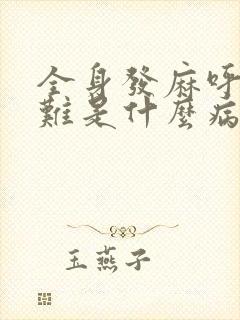 全身發麻呼
難是什麼病
玉燕子